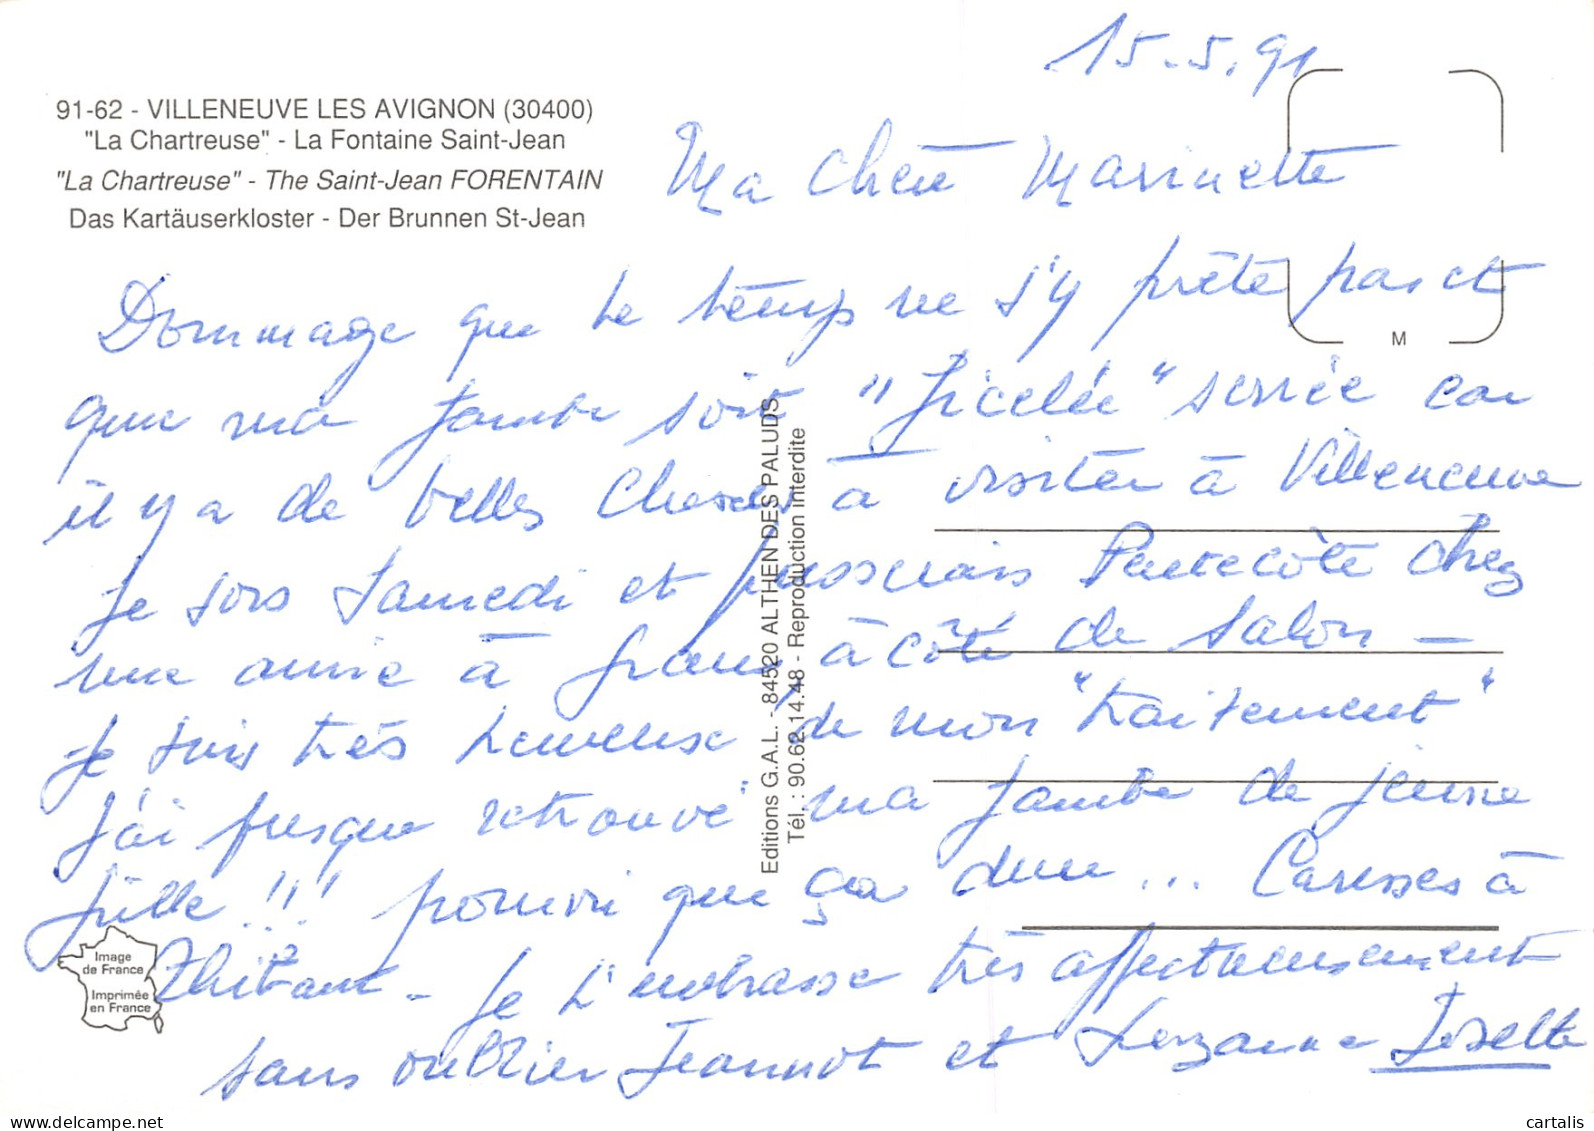 15.5.91
91-62 - VILLENEUVE LES AVIGNON (30400)
"La Chartreuse" - La Fontaine Saint-Jean
"La Chartreuse" - The Saint-Jean FORENTAIN
Das Kartäuserkloster - Der Brunnen St-Jean
M
Ma Chère Marinette
Dommage que le temps ne s'y prête pas et
que ma jambe soit "ficelée" serrée car
il y a de belles choses à visiter à Villeneuve
Je sors Samedi et passerais Pentecôte chez
une amie à Grans, à côté de Salon -
Je suis très heureuse de mon "traitement"
J'ai presque retrouvé ma jambe de jeune
fille !!! pourvu que ça dure ... Caresses à
Thibaut - Je t'embrasse très affectueusement
sans oublier Jeannot et Suzanne Josette
Editions G.A.L. - 84520 ALTHEN DES PALUDS
Tél. : 90.62.14.48 - Reproduction interdite
Image
de France
Imprimée
en France
delcampe.net
cartalis